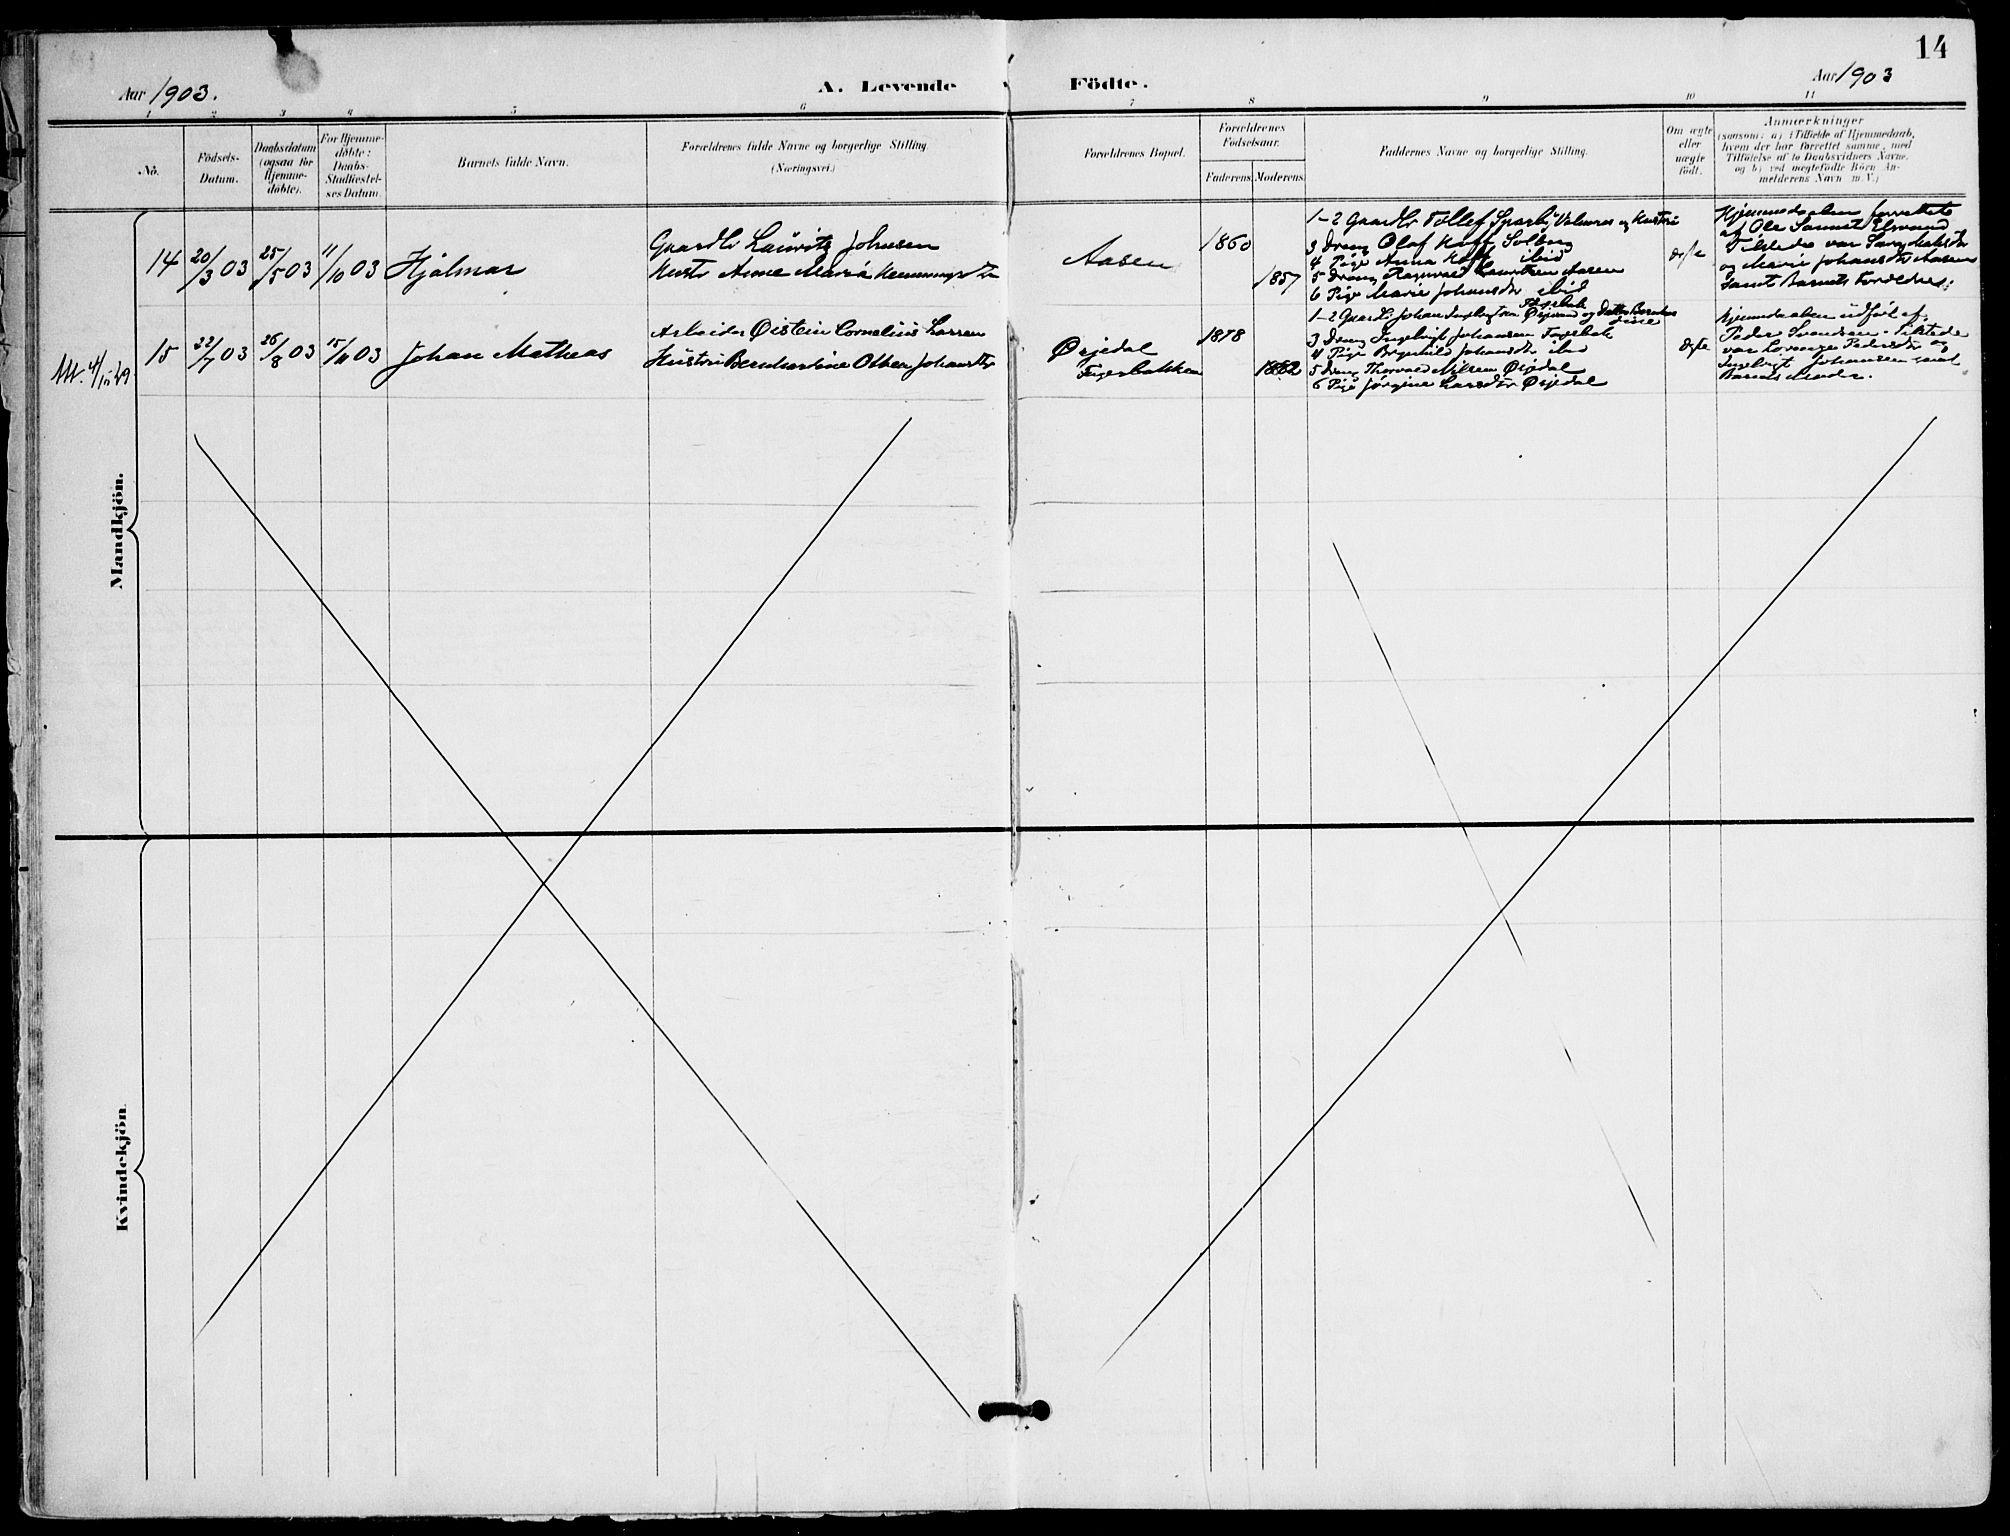 14
Aar 1903.
A. Levende Födte.
Aar 1903
1 2 3 4 5 6 7 8 9 10 11
No.
Födsels-
Datum.
Daabsdatum
(ogsaa for
Hjemme-
döbte).
For Hjemme-
döbte:
Daabs-
Stadfæstel-
ses Datum.
Barnets fulde Navn.
Forældrenes fulde Navne og borgerlige Stilling.
(Næringsvei.)
Forældrenes Bopæl.
Forældrenes
Födselsaar.
Faderens.
Moderens.
Faddernes Navne og borgerlige Stilling.
Om ægte
eller
uægte
födt.
Anmærkninger
(saasom: a) i Tilfælde af Hjemmedaab,
hvem der har forrettet samme, med
Tilföielse af to Daabsvidners Navne,
og b) ved uegtefödte Börn An-
melderens Navn m. V.)
Mandkjön.
14
20/3 03
25/5 03
11/10 03
Hjalmar
Gaardbr Lauritz Johnsen
Hustr Anne Maria
Aasen
1860
1857
1-2 Gaardbr Tollef og Hustru
3 Dreng Olaf Hoff Solberg
4 Pige Anna Hoff ibid
5 Dreng Lauritzen Aasen
6 Pige Marie Johansdtr ibid
ægte
Hjemmedaaben forrettet
af Ole
Tilstede var
og Marie Johansdtr Aasen
samt Barnets Forældre.
15
22/7 03
26/8 03
15/11 03
Johan Matheas
Arbeider Øistein Cornelius Larsen
Hustru Bernhardine Olsen Johansdtr
Øisjedal
Fagerbakken
1878
1882
1-2 Gaardbr Johan og
3 Dreng Ingebrigt Johansen Fagerbak
4 Pige Johansdtr ibid
5 Dreng Thorvald Nilsen Øisjedal
6 Pige Jørgine Larsdtr Øisjedal
ægte
Hjemmedaaben udført af
Peder Svendsen. Tilstede
var Pedersdtr og
Ingebrigt Johansen samt
Barnets Moder.
Kvindekjön